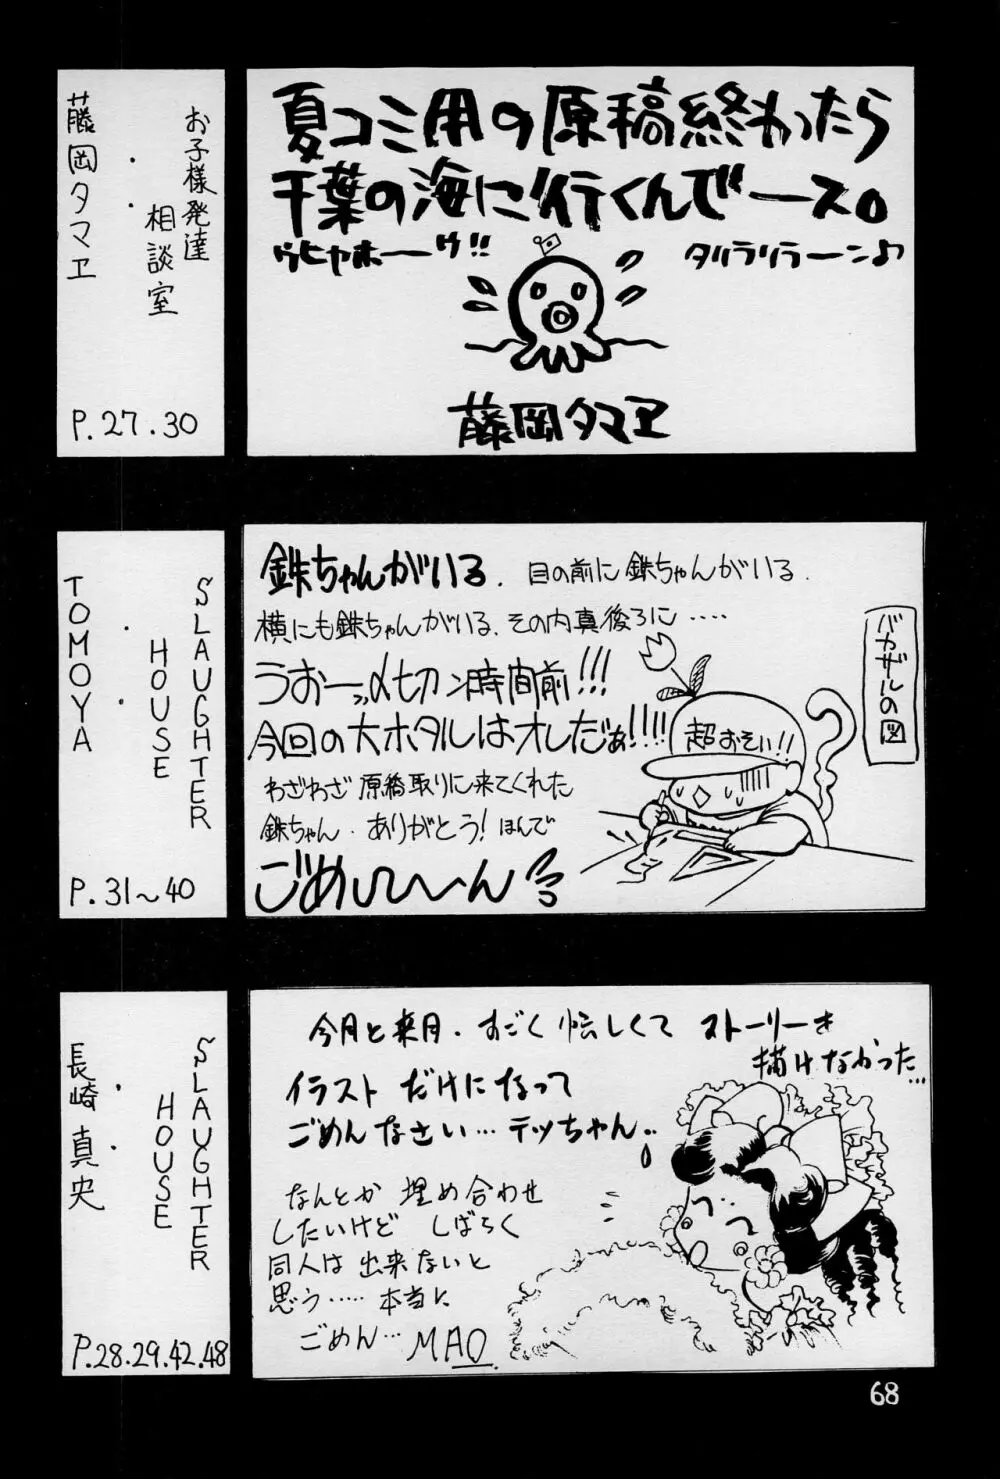 お子様発達
相談室
藤岡タマヱ
P.27.30
夏コミ用の原稿終わったら
千葉の海に行くんでーース。
ウヒャホーーゥ!!
タリラリラーーン♪
藤岡タマヱ
SLAUGHTER
HOUSE
TOMOYA
P.31〜40
鉄ちゃんがいる. 目の前に鉄ちゃんがいる.
横にも鉄ちゃんがいる、その内真後ろに・・・・・
うおーッ〆切ン時間前!!!
今回の大ホタルはオレだぁ!!!!
わざわざ 原稿取りに来てくれた
鉄ちゃん．ありがとう! ほんで
ごめし〜〜ん
超おそい!!
バカザルの図
SLAUGHTER
HOUSE
長崎真央
P.28.29.42.48
今月と来月．すごく忙しくて ストーリーを
描けなかった…
イラスト だけになって
ごめんなさい… テッちゃん..
なんとか 埋め合わせ
したいけど しばらく
同人は 出来ないと
思う…… 本当に
ごめん… MAO
68